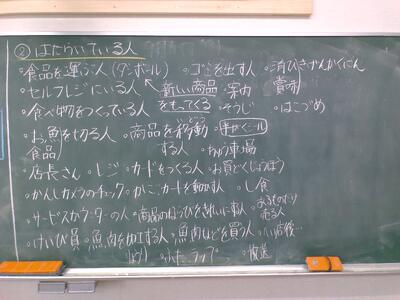 ②はたらいている人
・食品を運ぶ人(ダンボール) ・ゴミを出す人 ・消ひきげんかくにん
・セルフレジにいる人 新しい商品 ・案内 賞味
・食べ物をつくっている人 をもってくる ・そうじ ・はこづめ
・お魚を切る人 ・商品を移動 いどう ・半がくシール
食品 する人 ・ちゅう車場
・店長さん ・レジ ・カードをつくる人 ・お買どくじょうほう
・かんしカメラのチェック ・かご、カートを動かす人 ・し食
・サービスカウンターの人 ・商品のならびをきれいにする人 売る人
・けいび員 ・魚肉を加工する人 ・魚、肉などを買う人
・放送